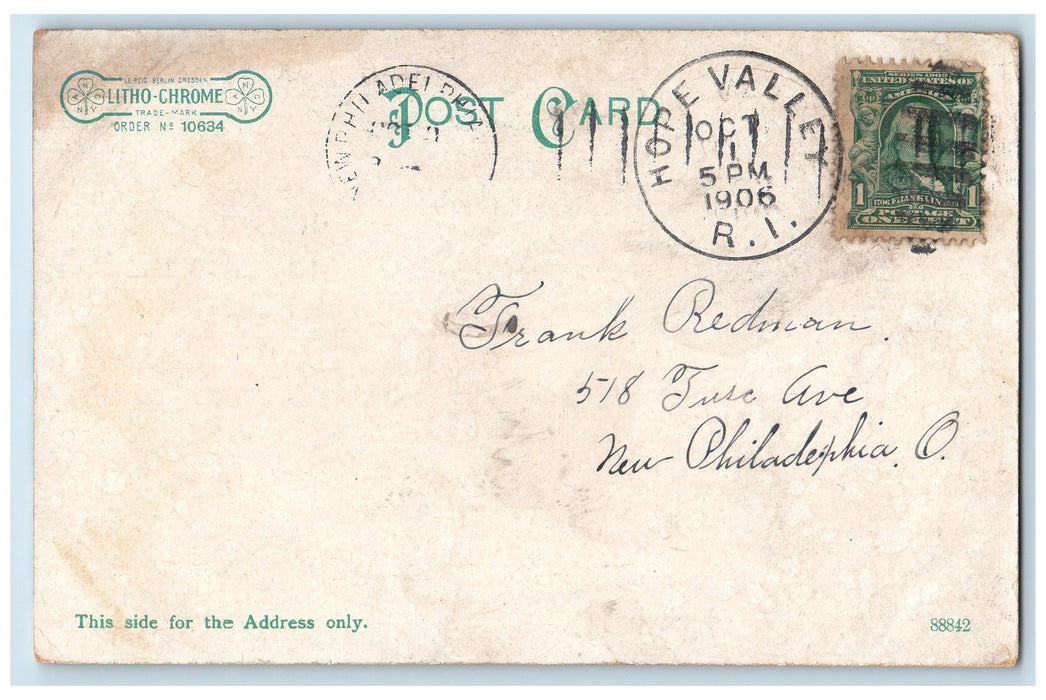 LEIPZIG BERLIN DRESDEN
LITHO-CHROME
TRADE-MARK
ORDER Nº 10634
NEW PHILADELPHIA
POST CARD
HOPE VALLEY
OCT
1
5 PM
1906
R. I.
SERIES 1902
UNITED STATES OF
AMERICA
1 1706 FRANKLIN 1790 1
POSTAGE
ONE CENT
Frank Redman.
518 Tusc Ave
New Philadephia, O.
This side for the Address only.
88842